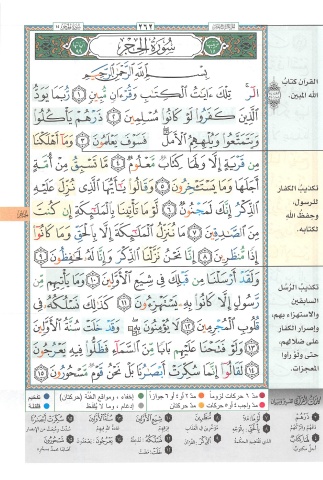 ٢٦٢
سُورَةُ الحِجْرِ
بِسْمِ اللَّهِ الرَّحْمَٰنِ الرَّحِيمِ
الٓر تِلْكَ ءَايَٰتُ الْكِتَٰبِ وَقُرْءَانٍ مُّبِينٍ ١ رُّبَمَا يَوَدُّ
الَّذِينَ كَفَرُوا لَوْ كَانُوا مُسْلِمِينَ ٢ ذَرْهُمْ يَأْكُلُوا
وَيَتَمَتَّعُوا وَيُلْهِهِمُ الْأَمَلُ فَسَوْفَ يَعْلَمُونَ ٣ وَمَا أَهْلَكْنَا
مِن قَرْيَةٍ إِلَّا وَلَهَا كِتَابٌ مَّعْلُومٌ ٤ مَّا تَسْبِقُ مِنْ أُمَّةٍ
أَجَلَهَا وَمَا يَسْتَـْٔخِرُونَ ٥ وَقَالُوا يَٰأَيُّهَا الَّذِي نُزِّلَ عَلَيْهِ
الذِّكْرُ إِنَّكَ لَمَجْنُونٌ ٦ لَّوْ مَا تَأْتِينَا بِالْمَلَٰئِكَةِ إِن كُنتَ
مِنَ الصَّٰدِقِينَ ٧ مَا نُنَزِّلُ الْمَلَٰئِكَةَ إِلَّا بِالْحَقِّ وَمَا كَانُوا
إِذًا مُّنظَرِينَ ٨ إِنَّا نَحْنُ نَزَّلْنَا الذِّكْرَ وَإِنَّا لَهُ لَحَٰفِظُونَ ٩
وَلَقَدْ أَرْسَلْنَا مِن قَبْلِكَ فِي شِيَعِ الْأَوَّلِينَ ١٠ وَمَا يَأْتِيهِم مِّن
رَّسُولٍ إِلَّا كَانُوا بِهِ يَسْتَهْزِءُونَ ١١ كَذَٰلِكَ نَسْلُكُهُ فِي
قُلُوبِ الْمُجْرِمِينَ ١٢ لَا يُؤْمِنُونَ بِهِ وَقَدْ خَلَتْ سُنَّةُ الْأَوَّلِينَ
١٣ وَلَوْ فَتَحْنَا عَلَيْهِم بَابًا مِّنَ السَّمَاءِ فَظَلُّوا فِيهِ يَعْرُجُونَ
١٤ لَقَالُوا إِنَّمَا سُكِّرَتْ أَبْصَٰرُنَا بَلْ نَحْنُ قَوْمٌ مَّسْحُورُونَ ١٥
القرآن كتاب
الله المبين.
تكذيب الكفار
للرسول،
وحفظ الله
لكتابه.
تكذيب الرسل
السابقين
والاستهزاء بهم،
وإصرار الكفار
على ضلالهم،
حتى ولو رأوا
المعجزات.
مد ٦ حركات لزوماً
مد ٢ أو ٤ أو ٦ جوازاً
إخفاء، ومواقع الغنة (حركتان)
تفخيم
مد حركتان
إدغام، وما لا يُلفظ
قلقلة